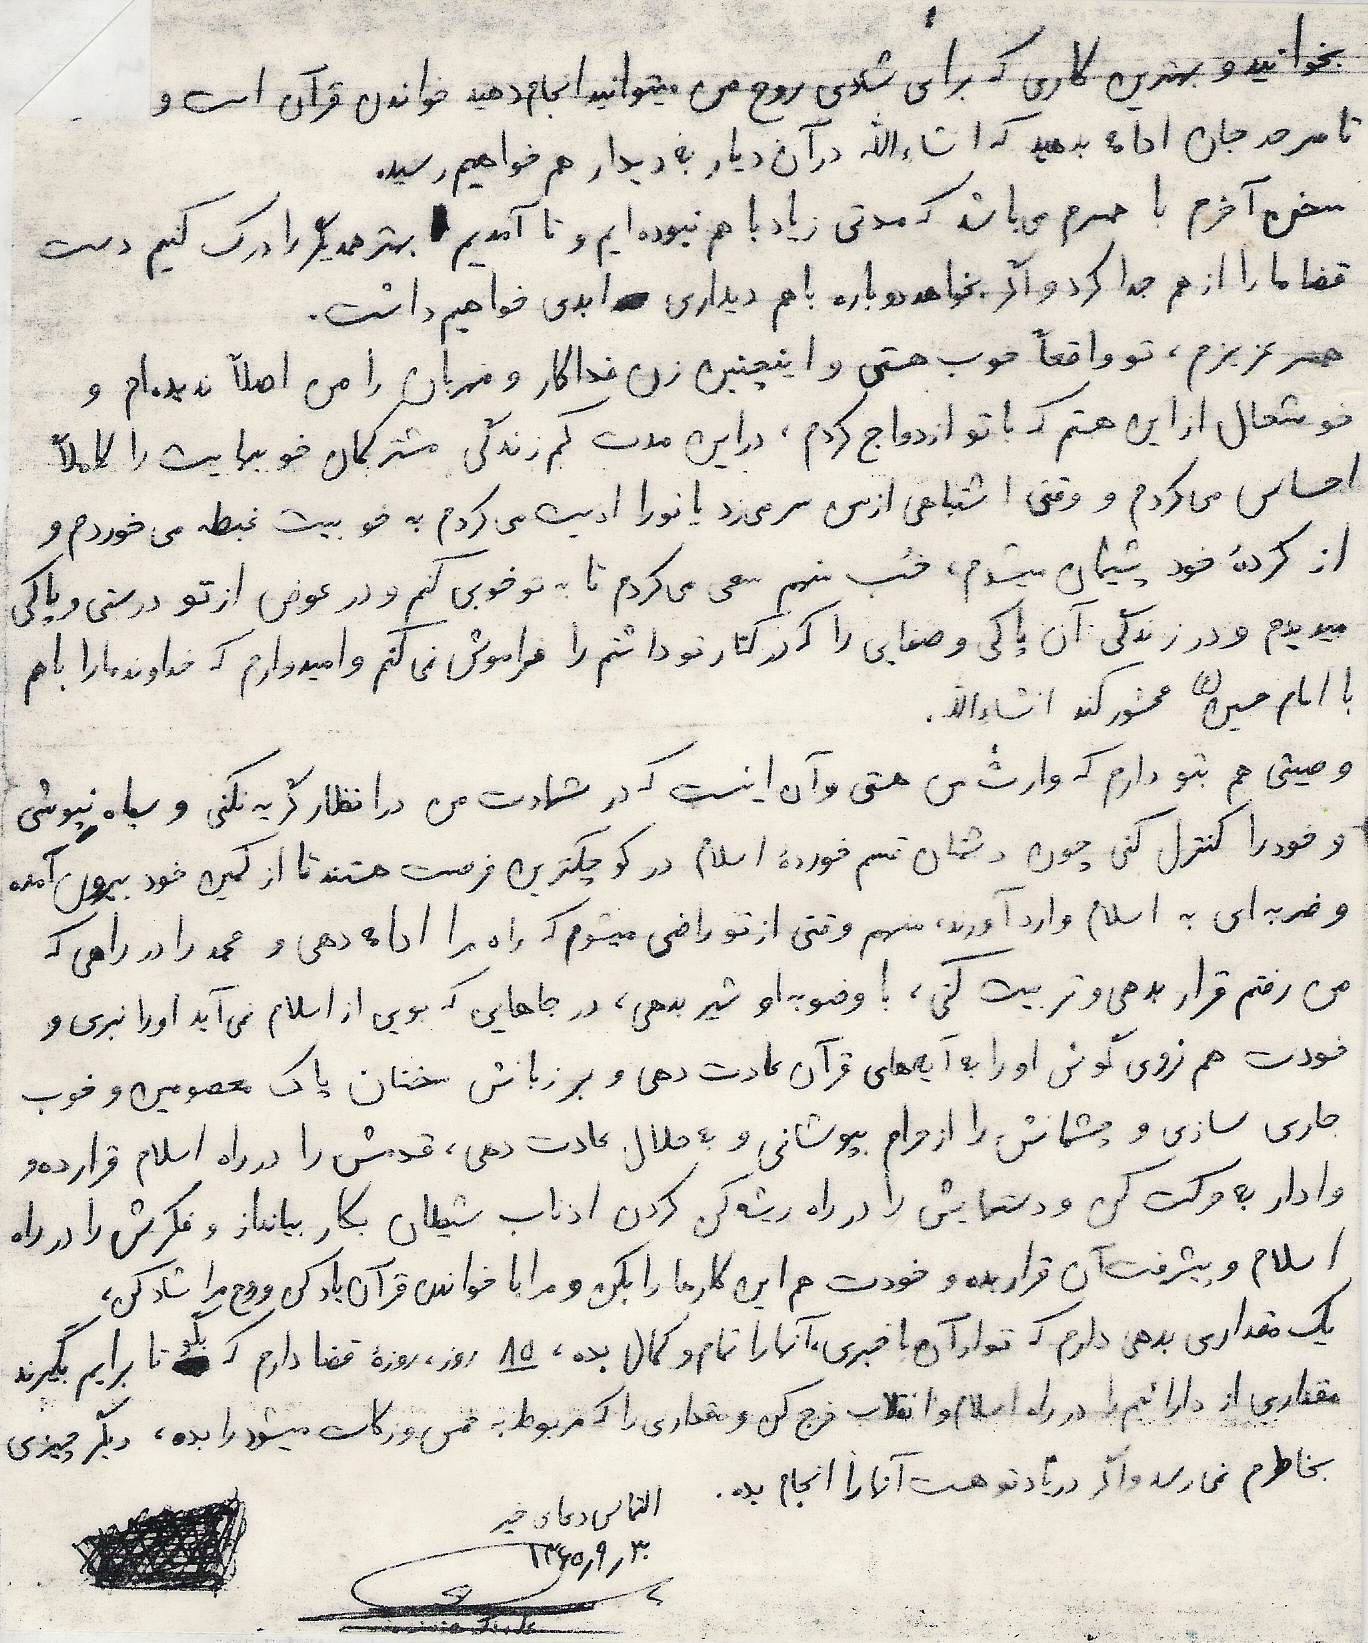 بخوانید و بهترین کاری که برای شادی روح من میتوانید انجام دهید خواندن قرآن است و
تا سرحد جان ادامه بدهید که انشاءالله در آن دیار به دیدار هم خواهیم رسید.
سخن آخرم با همسرم می‌باشد که مدتی زیاد با هم نبوده‌ایم و تا آمدیم بهتر همدیگر را درک کنیم دست
قضا ما را از هم جدا کرد و اگر بخواهد دوباره با هم دیداری ابدی خواهیم داشت.
همسر عزیزم، تو واقعاً خوب هستی و اینچنین زن فداکار و مهربان را من اصلاً ندیده‌ام و
خوشحال از این هستم که با تو ازدواج کردم، در این مدت کم زندگی مشترکمان خوبیهایت را کاملاً
احساس می‌کردم و وقتی اشتباهی از من سر می‌زد یا تو را اذیت می‌کردم به خوبیت غبطه می‌خوردم و
از کردهٔ خود پشیمان میشوم، خب منهم سعی می‌کردم تا به تو خوبی کنم و در عوض از تو درستی و پاکی
میدیدم و در زندگی آن پاکی و صفایی را که در کنار تو داشتم را فراموش نمی‌کنم و امیدوارم که خداوند ما را با هم
با امام حسین (ع) محشور کند انشاءالله.
وصیتی هم بتو دارم که وارث من هستی و آن اینست که در شهادت من در انظار گریه نکنی و سیاه نپوشی
و خود را کنترل کنی چون دشمنان قسم خوردهٔ اسلام در کوچکترین فرصت هستند تا از کمین خود بیرون آمده
و ضربه‌ای به اسلام وارد آورند، منهم وقتی از تو راضی میشوم که راه مرا ادامه دهی و محمد را در راهی که
من رفتم قرار بدهی و تربیت کنی، با وضو به او شیر بدهی، در جاهایی که بویی از اسلام نمی‌آید او را نبری و
خودت هم نروی گوش او را به آیه‌های قرآن عادت دهی و بر زبانش سخنان پاک معصومین و خوب
جاری سازی و چشمانش را از حرام بپوشانی و به حلال عادت دهی، قدمش را در راه اسلام قرار ده و
وادار به حرکت کن و دستهایش را در راه ریشه‌کن کردن اذناب شیطان بکار بیانداز و فکرش را در راه
اسلام و پیشرفت آن قرار بده و خودت هم این کارها را بکن و مرا با خواندن قرآن یاد کن و روح مرا شاد کن،
یک مقداری بدهی دارم که تو از آن باخبری، آنها را تمام و کمال بده، ۸۵ روز، روزهٔ قضا دارم که بگو تا برایم بگیرند
مقداری از دارائیم را در راه اسلام و انقلاب خرج کن و مقداری را که مربوط به خمس و زکات میشود را بده، دیگر چیزی
بخاطرم نمی‌رسد و اگر در یاد تو هست آنها را انجام بده.
التماس دعای خیر
۱۳۶۵/۹/۳۰